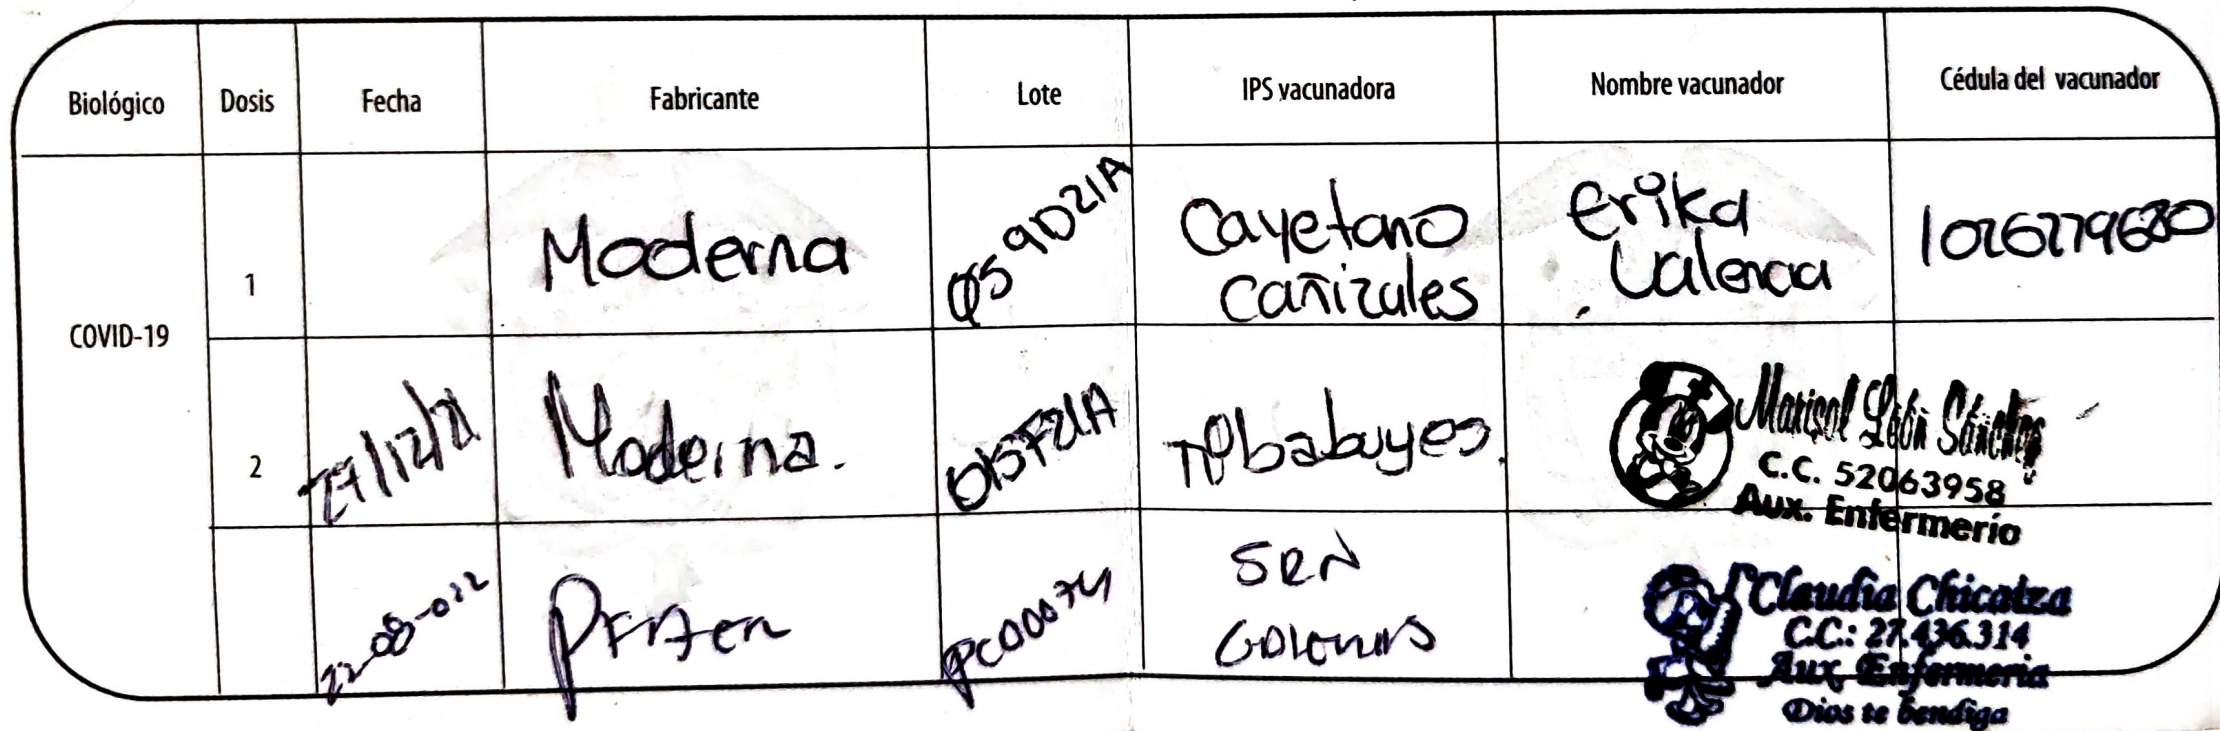 Biológico Dosis Fecha Fabricante Lote IPS vacunadora Nombre vacunador Cédula del vacunador
COVID-19
1 Moderna 059D21A Cayetano Cañizales Erika Valencia 1026279680
2 27/12/21 Moderna. 015F21A Tibabuyes. Marisol León Sánchez
C.C. 52063958
Aux. Enfermería
22-08-022 Pfizer PC00074 SRN
Claudia Chicaiza
C.C.: 27.436.314
Aux. Enfermeria
Dios te bendiga